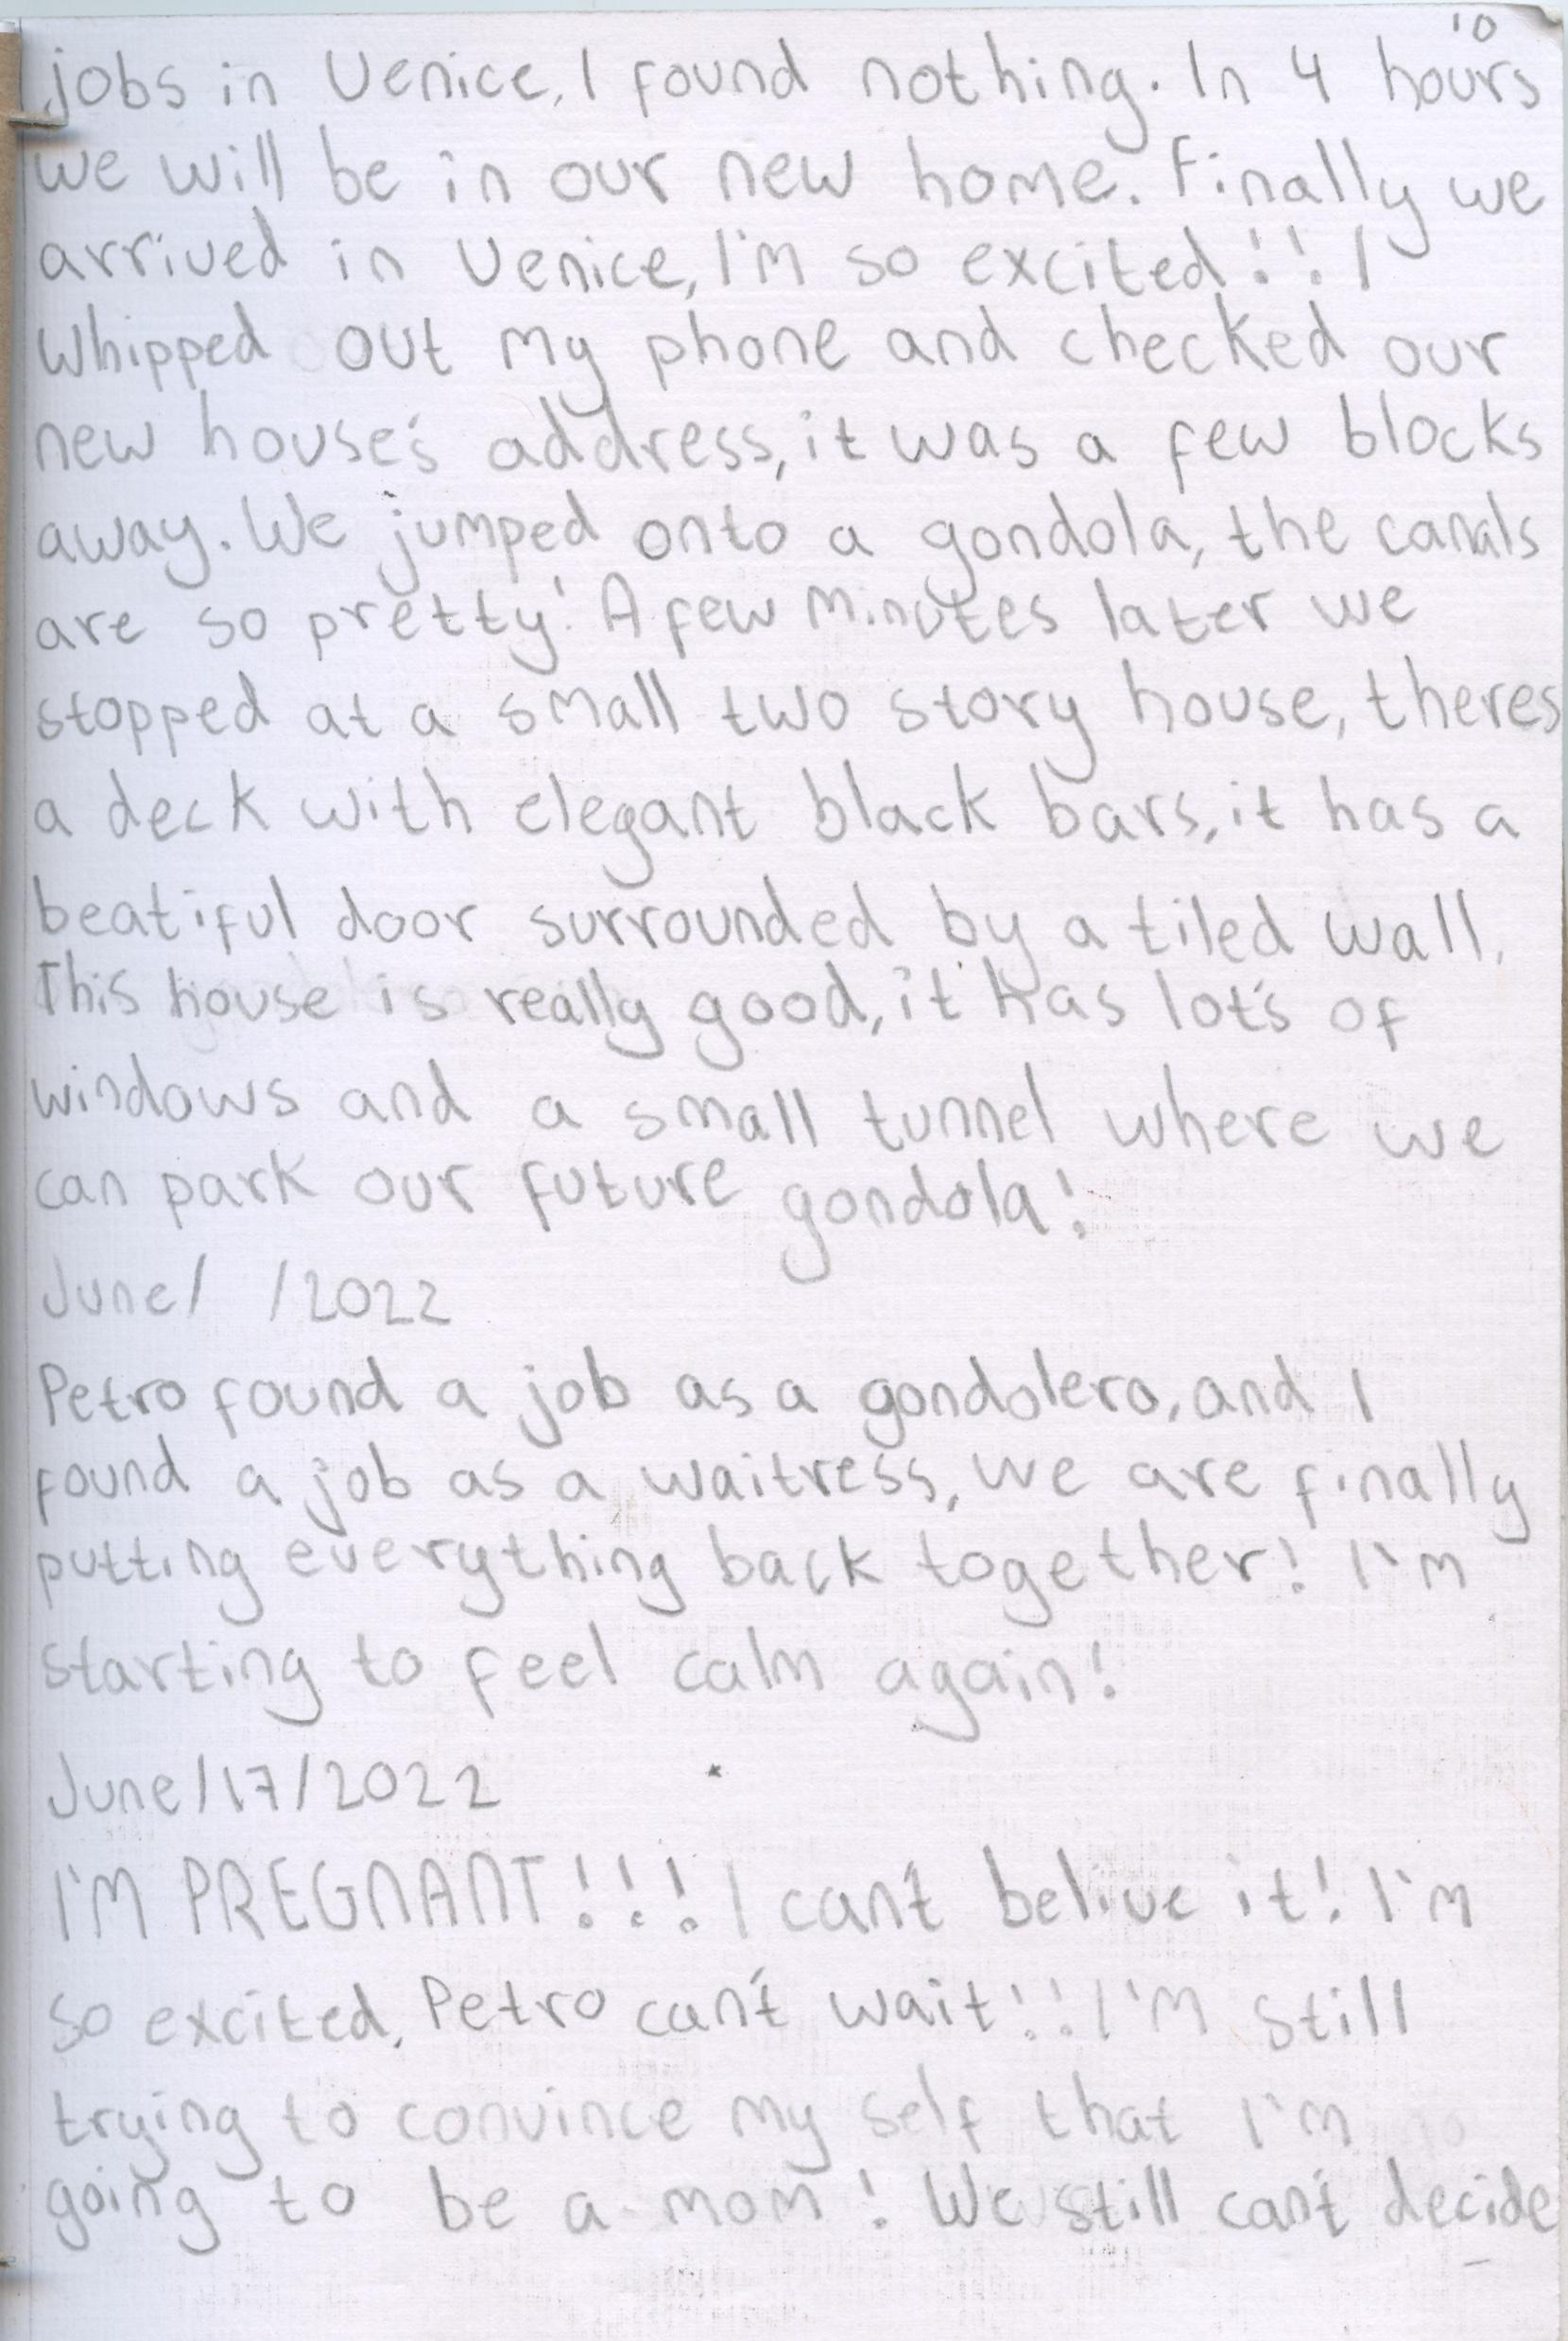 10
jobs in Venice, I found nothing. In 4 hours
we will be in our new home. Finally we
arrived in Venice, I'm so excited!! I
whipped out my phone and checked our
new house's address, it was a few blocks
away. We jumped onto a gondola, the canals
are so pretty! A few minutes later we
stopped at a small two story house, theres
a deck with elegant black bars, it has a
beatiful door surrounded by a tiled wall.
This house is really good, it has lot's of
windows and a small tunnel where we
can park our future gondola!
June/ /2022
Petro found a job as a gondolero, and I
found a job as a waitress, we are finally
putting everything back together! I'm
starting to feel calm again!
June/17/2022
I'M PREGNANT!!! I can't belive it! I'm
so excited, Petro can't wait!! I'm still
trying to convince my self that I'm
going to be a mom! We still can't decide